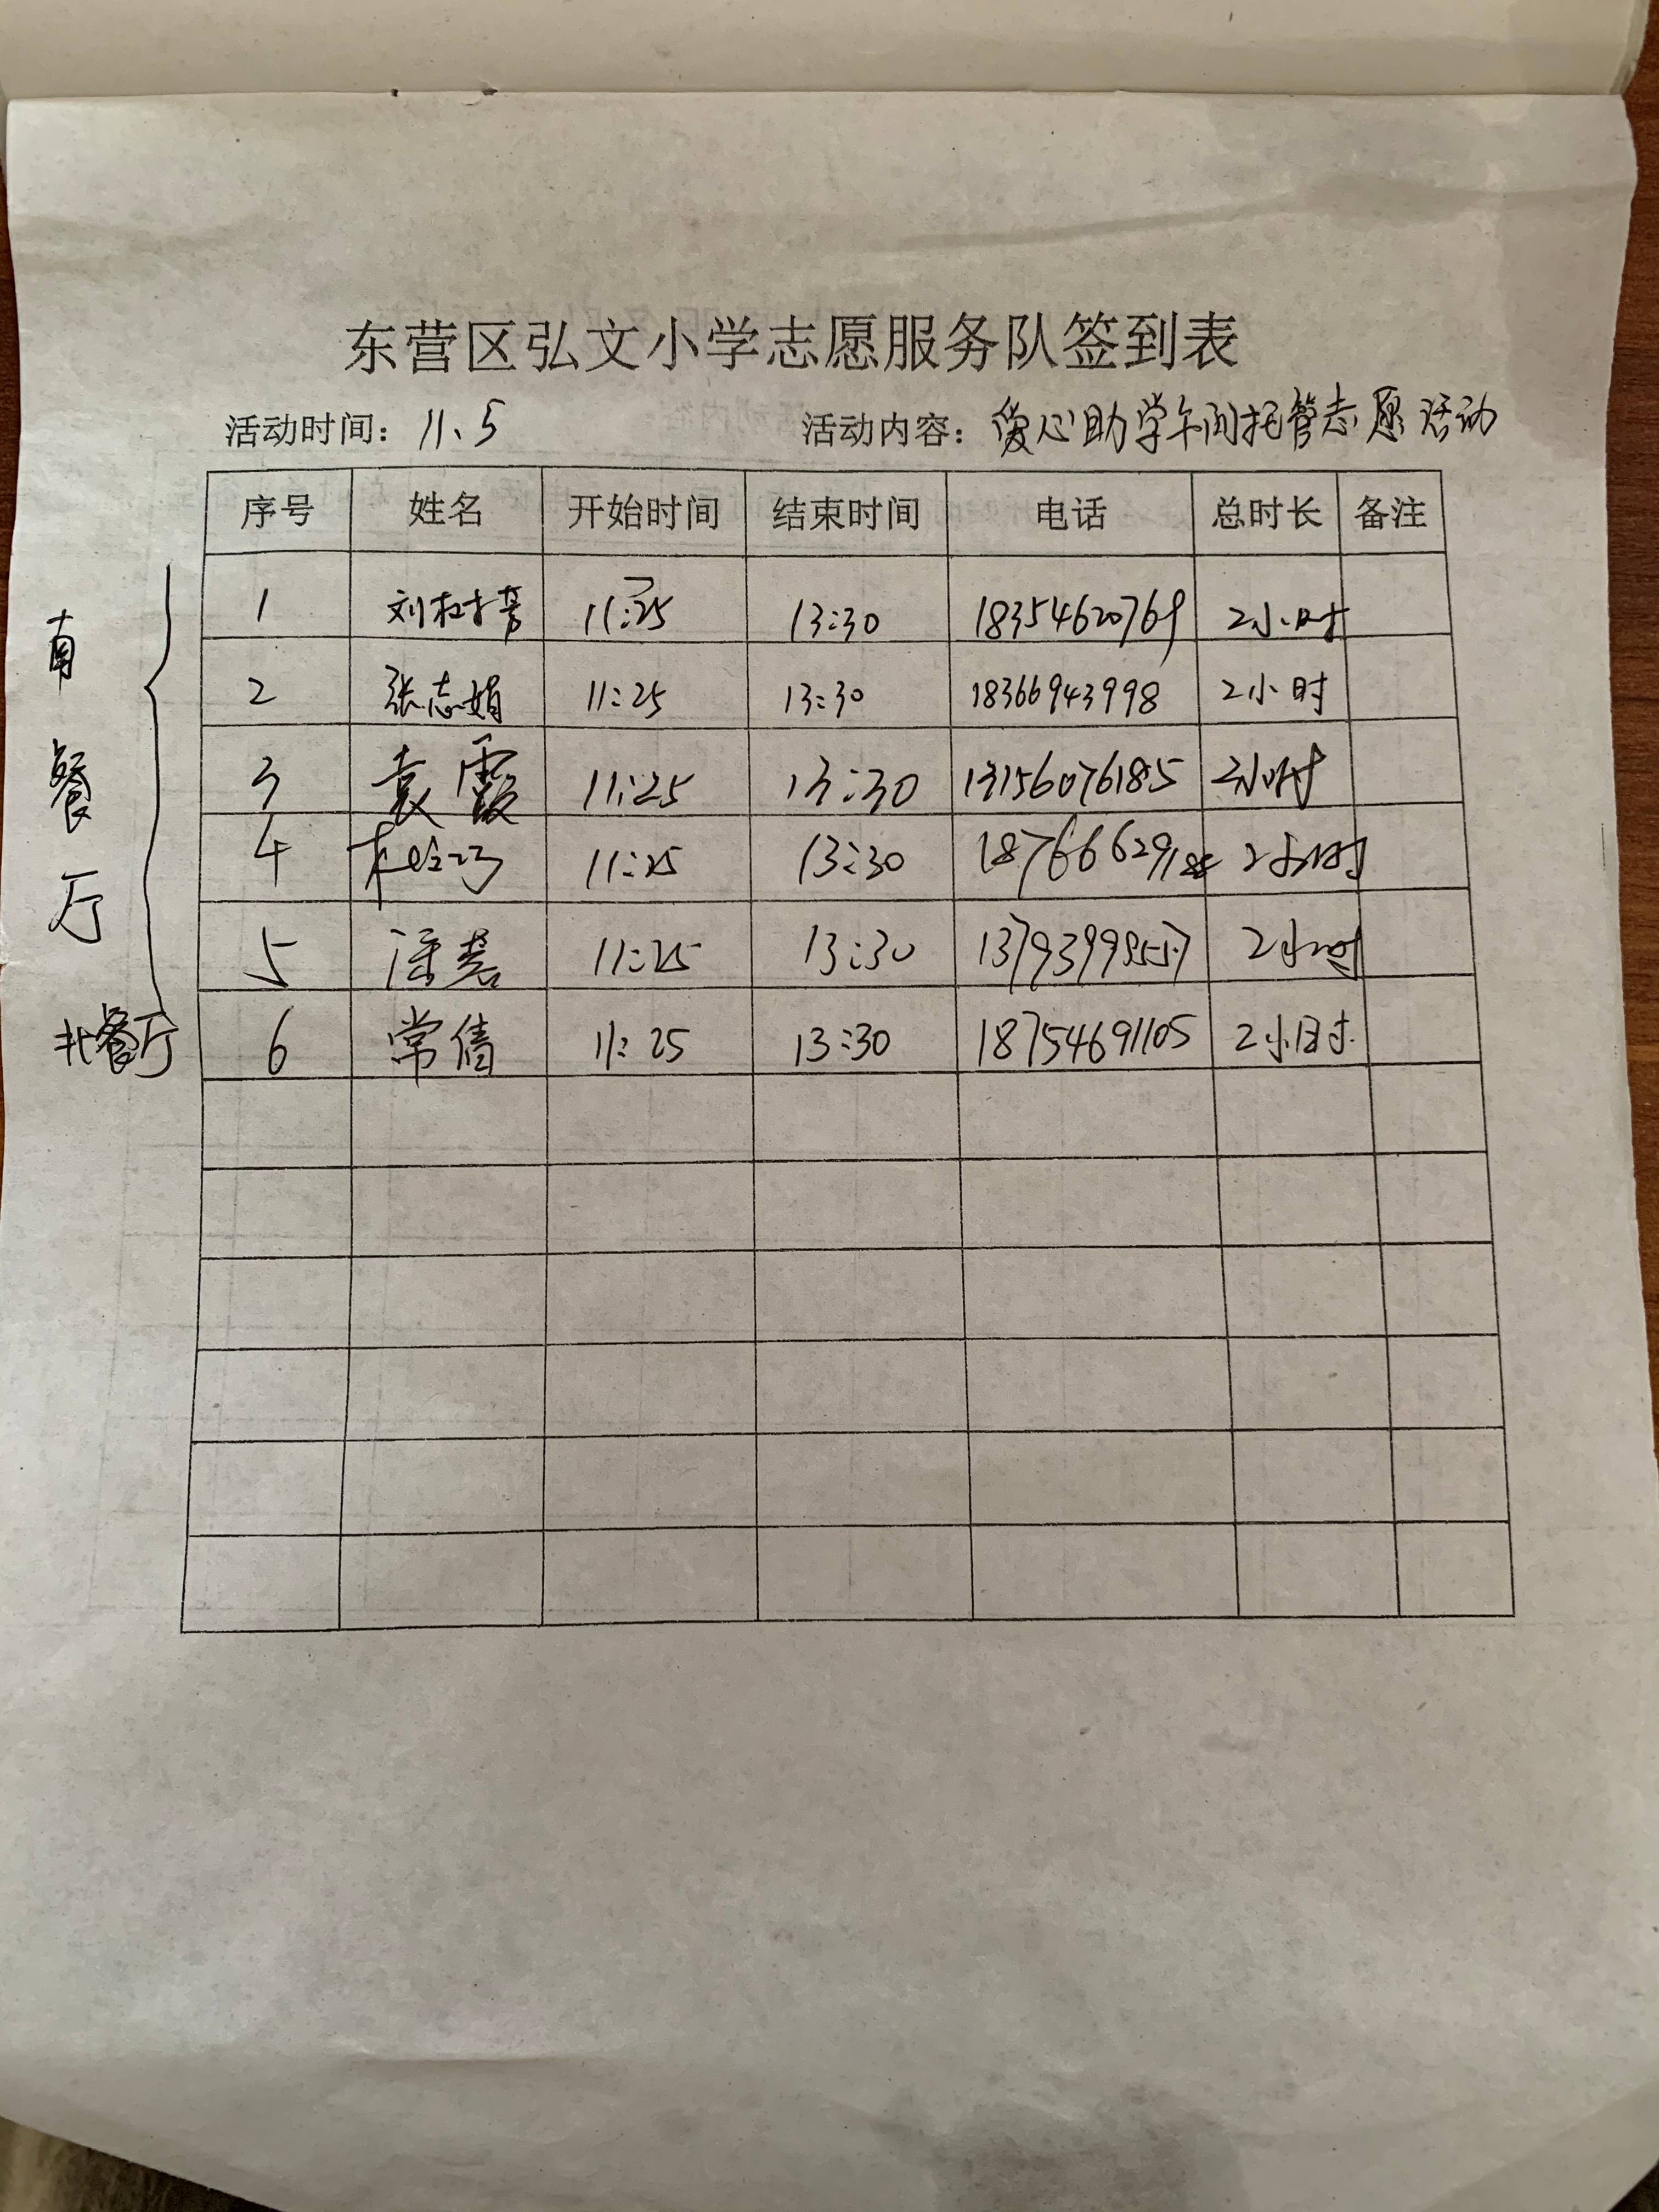 东营区弘文小学志愿服务队签到表
活动时间：11、5 活动内容：爱心助学午间托管志愿活动
序号 姓名 开始时间 结束时间 电话 总时长 备注
南餐厅
1 刘树芳 11:25 13:30 18354620769 2小时
2 张志娟 11:25 13:30 18366943998 2小时
3 袁霞 11:25 13:30 13156076185 2小时
4 11:25 13:30 2小时
5 11:25 13:30 2小时
北餐厅 6 常倩 11:25 13:30 18754691105 2小时